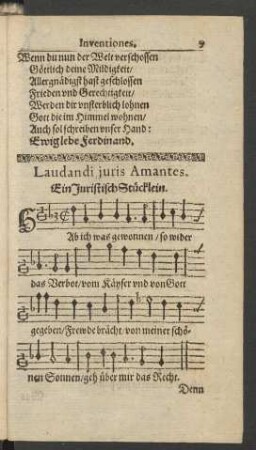 Inventiones. 9
Wenn du nun der Welt verschossen
Göttlich deine Mildigkeit/
Allergnädigst hast geschlossen
Frieden vnd Gerechtigkeit/
Werden dir vnsterblich lohnen
Gott die im Himmel wohnen/
Auch sol schreiben vnser Hand:
Ewig lebe Ferdinand.
Laudandi juris Amantes.
Ein Juristisch Stücklein.
Ab ich was gewonnen / so wider
das Verbot/vom Käyser vnd von Gott
gegeben/Frewde brächt/von meiner schö-
nen Sonnen/geh über mir das Recht.
Denn